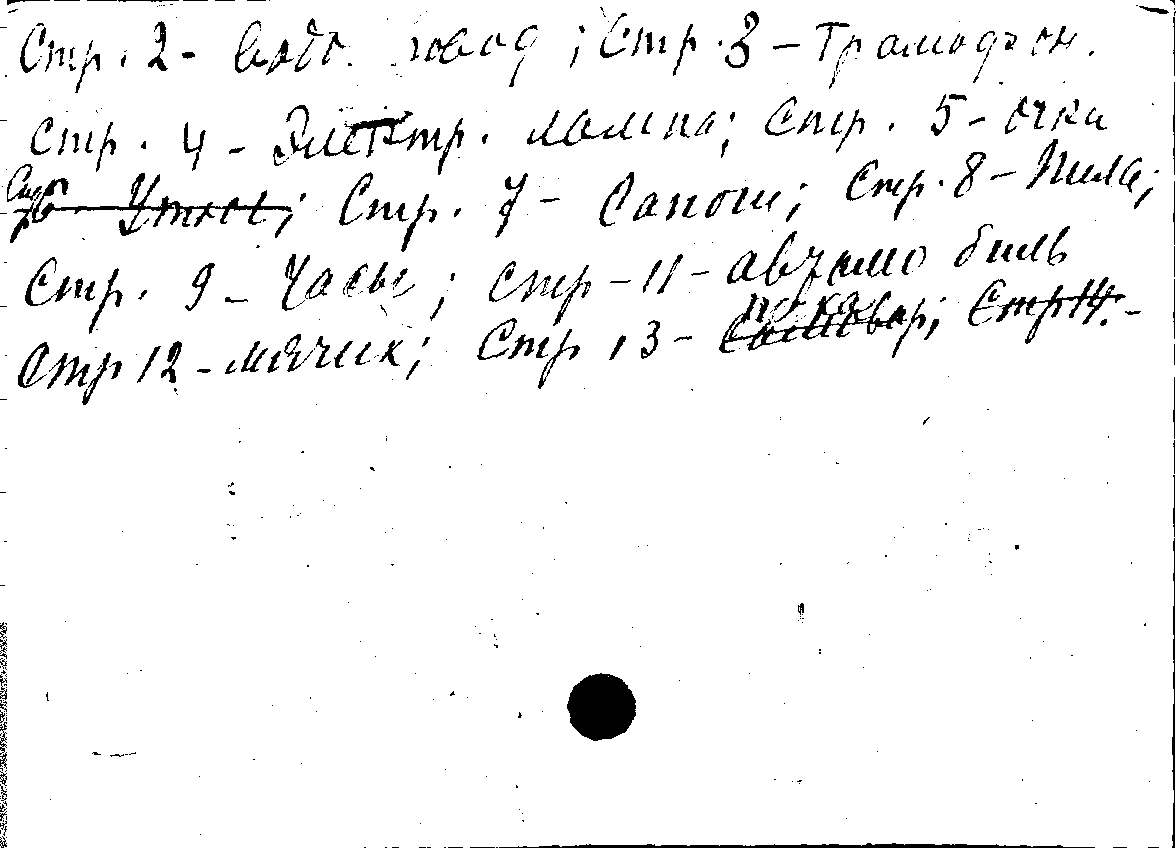 Стр. 2 - водо. ровод; Стр. 3 - Грамофон.
Стр. 4 - Электр. лампа; Стр. 5 - очки
6 - Утюг; Стр. 7 - Сапоги; Стр. 8 - Пила;
Стр. 9 - Часы; Стр - 11 - автомо биль
Стр 12 - мячик; Стр 13 - Самовар; Стр 14. -